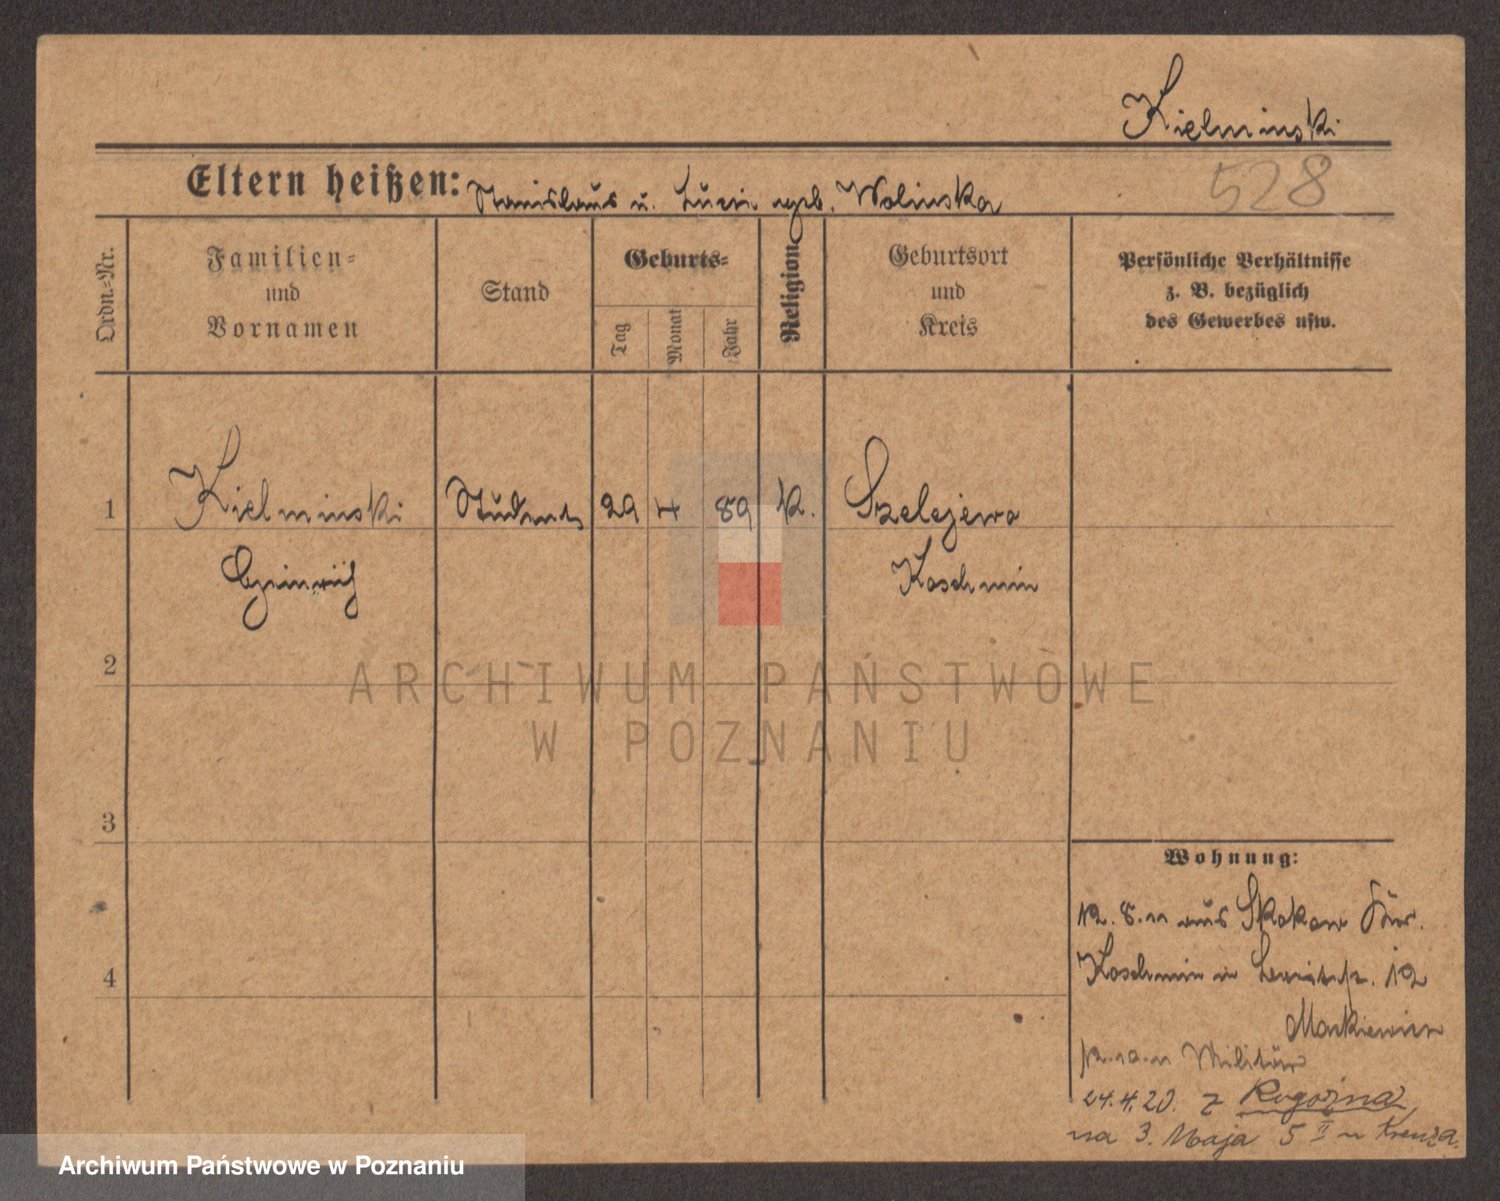 Kielminski
Eltern heißen: Stanislaus u. Luzie geb. Wolinska
528
Ordn.-Nr.
Familien-
und
Vornamen
Stand
Geburts-
Tag
Monat
Jahr
Religion
Geburtsort
und
Kreis
Persönliche Verhältnisse
z. B. bezüglich
des Gewerbes usw.
1
Kielminski
Student
29
4
89
k.
Szelejewo
Heinrich
Koschmin
2
ARCHIWUM PAŃSTWOWE
W POZNANIU
3
Wohnung:
12. 8. 11 aus Skokow Kr.
4
Koschmin 12
Markiewicz
Militär
24.4.20. z Rogoźna
na 3. Maja 5 II u
Archiwum Państwowe w Poznaniu